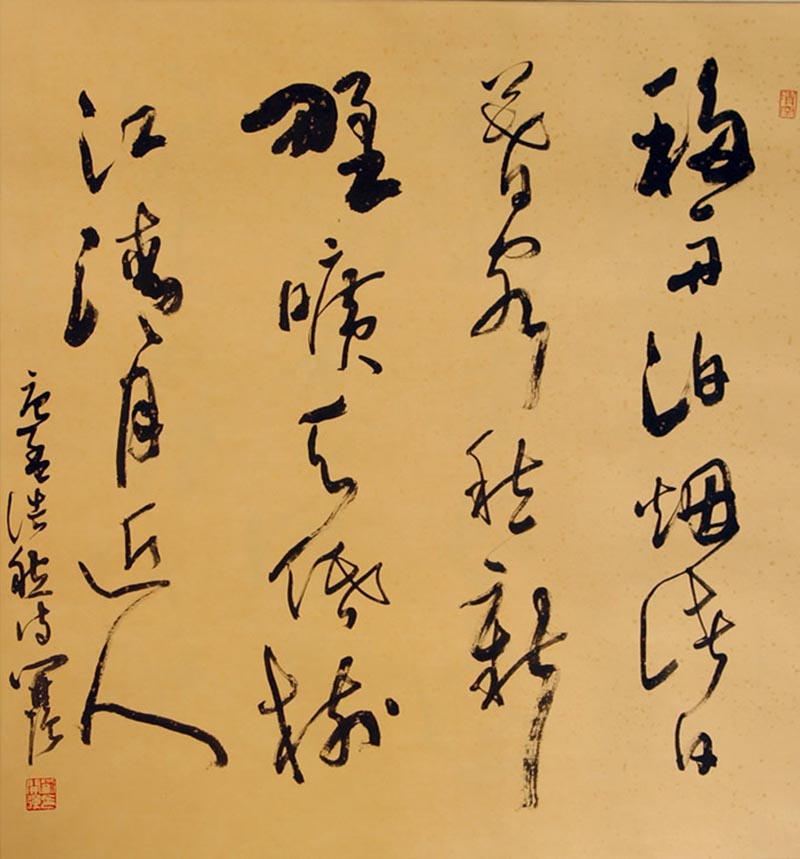 移舟泊烟渚日
暮客愁新
野曠天低樹
江清月近人
唐孟浩然诗